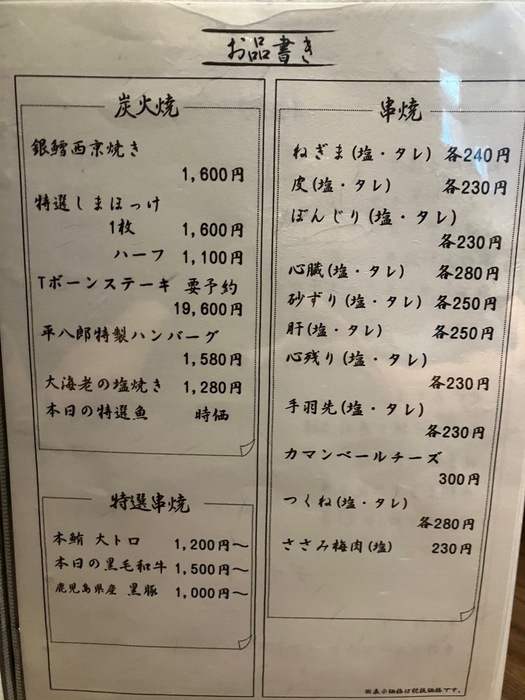 お品書き
炭火焼
銀鱈西京焼き
1,600円
特選しまほっけ
1枚 1,600円
ハーフ 1,100円
Tボーンステーキ 要予約
19,600円
平八郎特製ハンバーグ
1,580円
大海老の塩焼き 1,280円
本日の特選魚 時価
特選串焼
本鮪 大トロ 1,200円～
本日の黒毛和牛 1,500円～
鹿児島県産 黒豚 1,000円～
串焼
ねぎま(塩・タレ) 各240円
皮(塩・タレ) 各230円
ぼんじり(塩・タレ)
各230円
心臓(塩・タレ) 各280円
砂ずり(塩・タレ) 各250円
肝(塩・タレ) 各250円
心残り(塩・タレ)
各230円
手羽先(塩・タレ)
各230円
カマンベールチーズ
300円
つくね(塩・タレ)
各280円
ささみ梅肉(塩) 230円
※表示価格は税抜価格です。